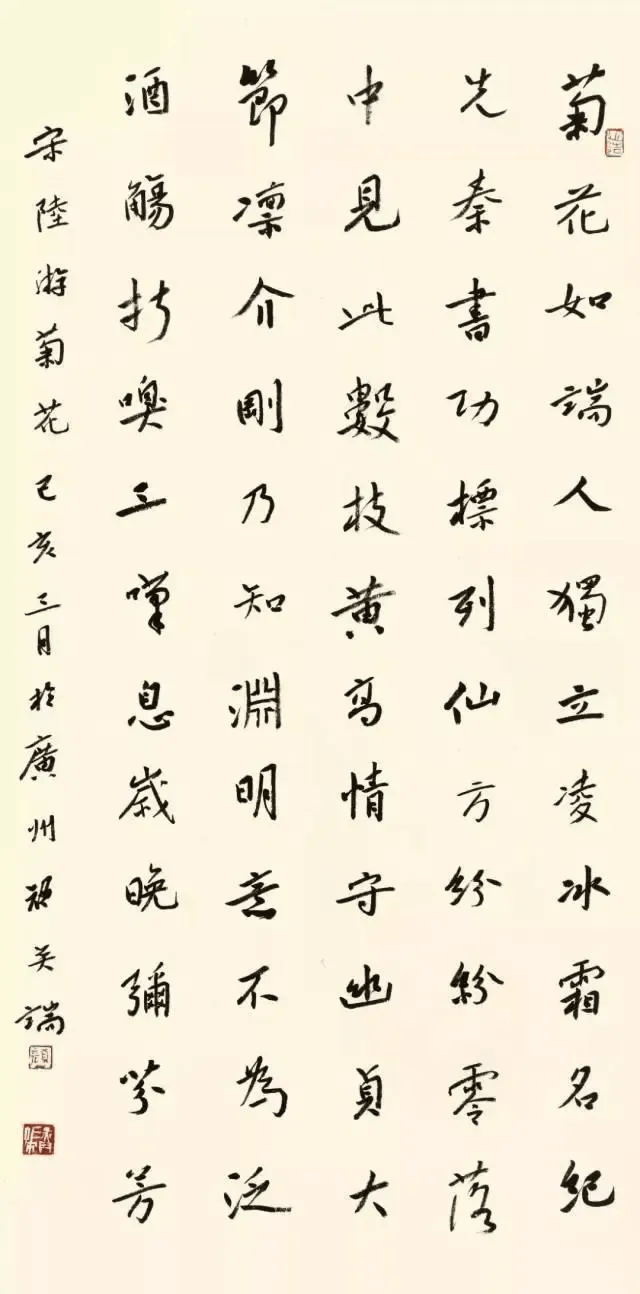 菊花如端人獨立凌冰霜名紀
先秦書功標列仙方紛紛零落
中見此數枝黃高情守幽貞大
節凜介剛乃知淵明意不為泛
酒觴折嗅三嘆息歲晚彌芬芳
宋陸游菊花己亥三月於廣州 吳端